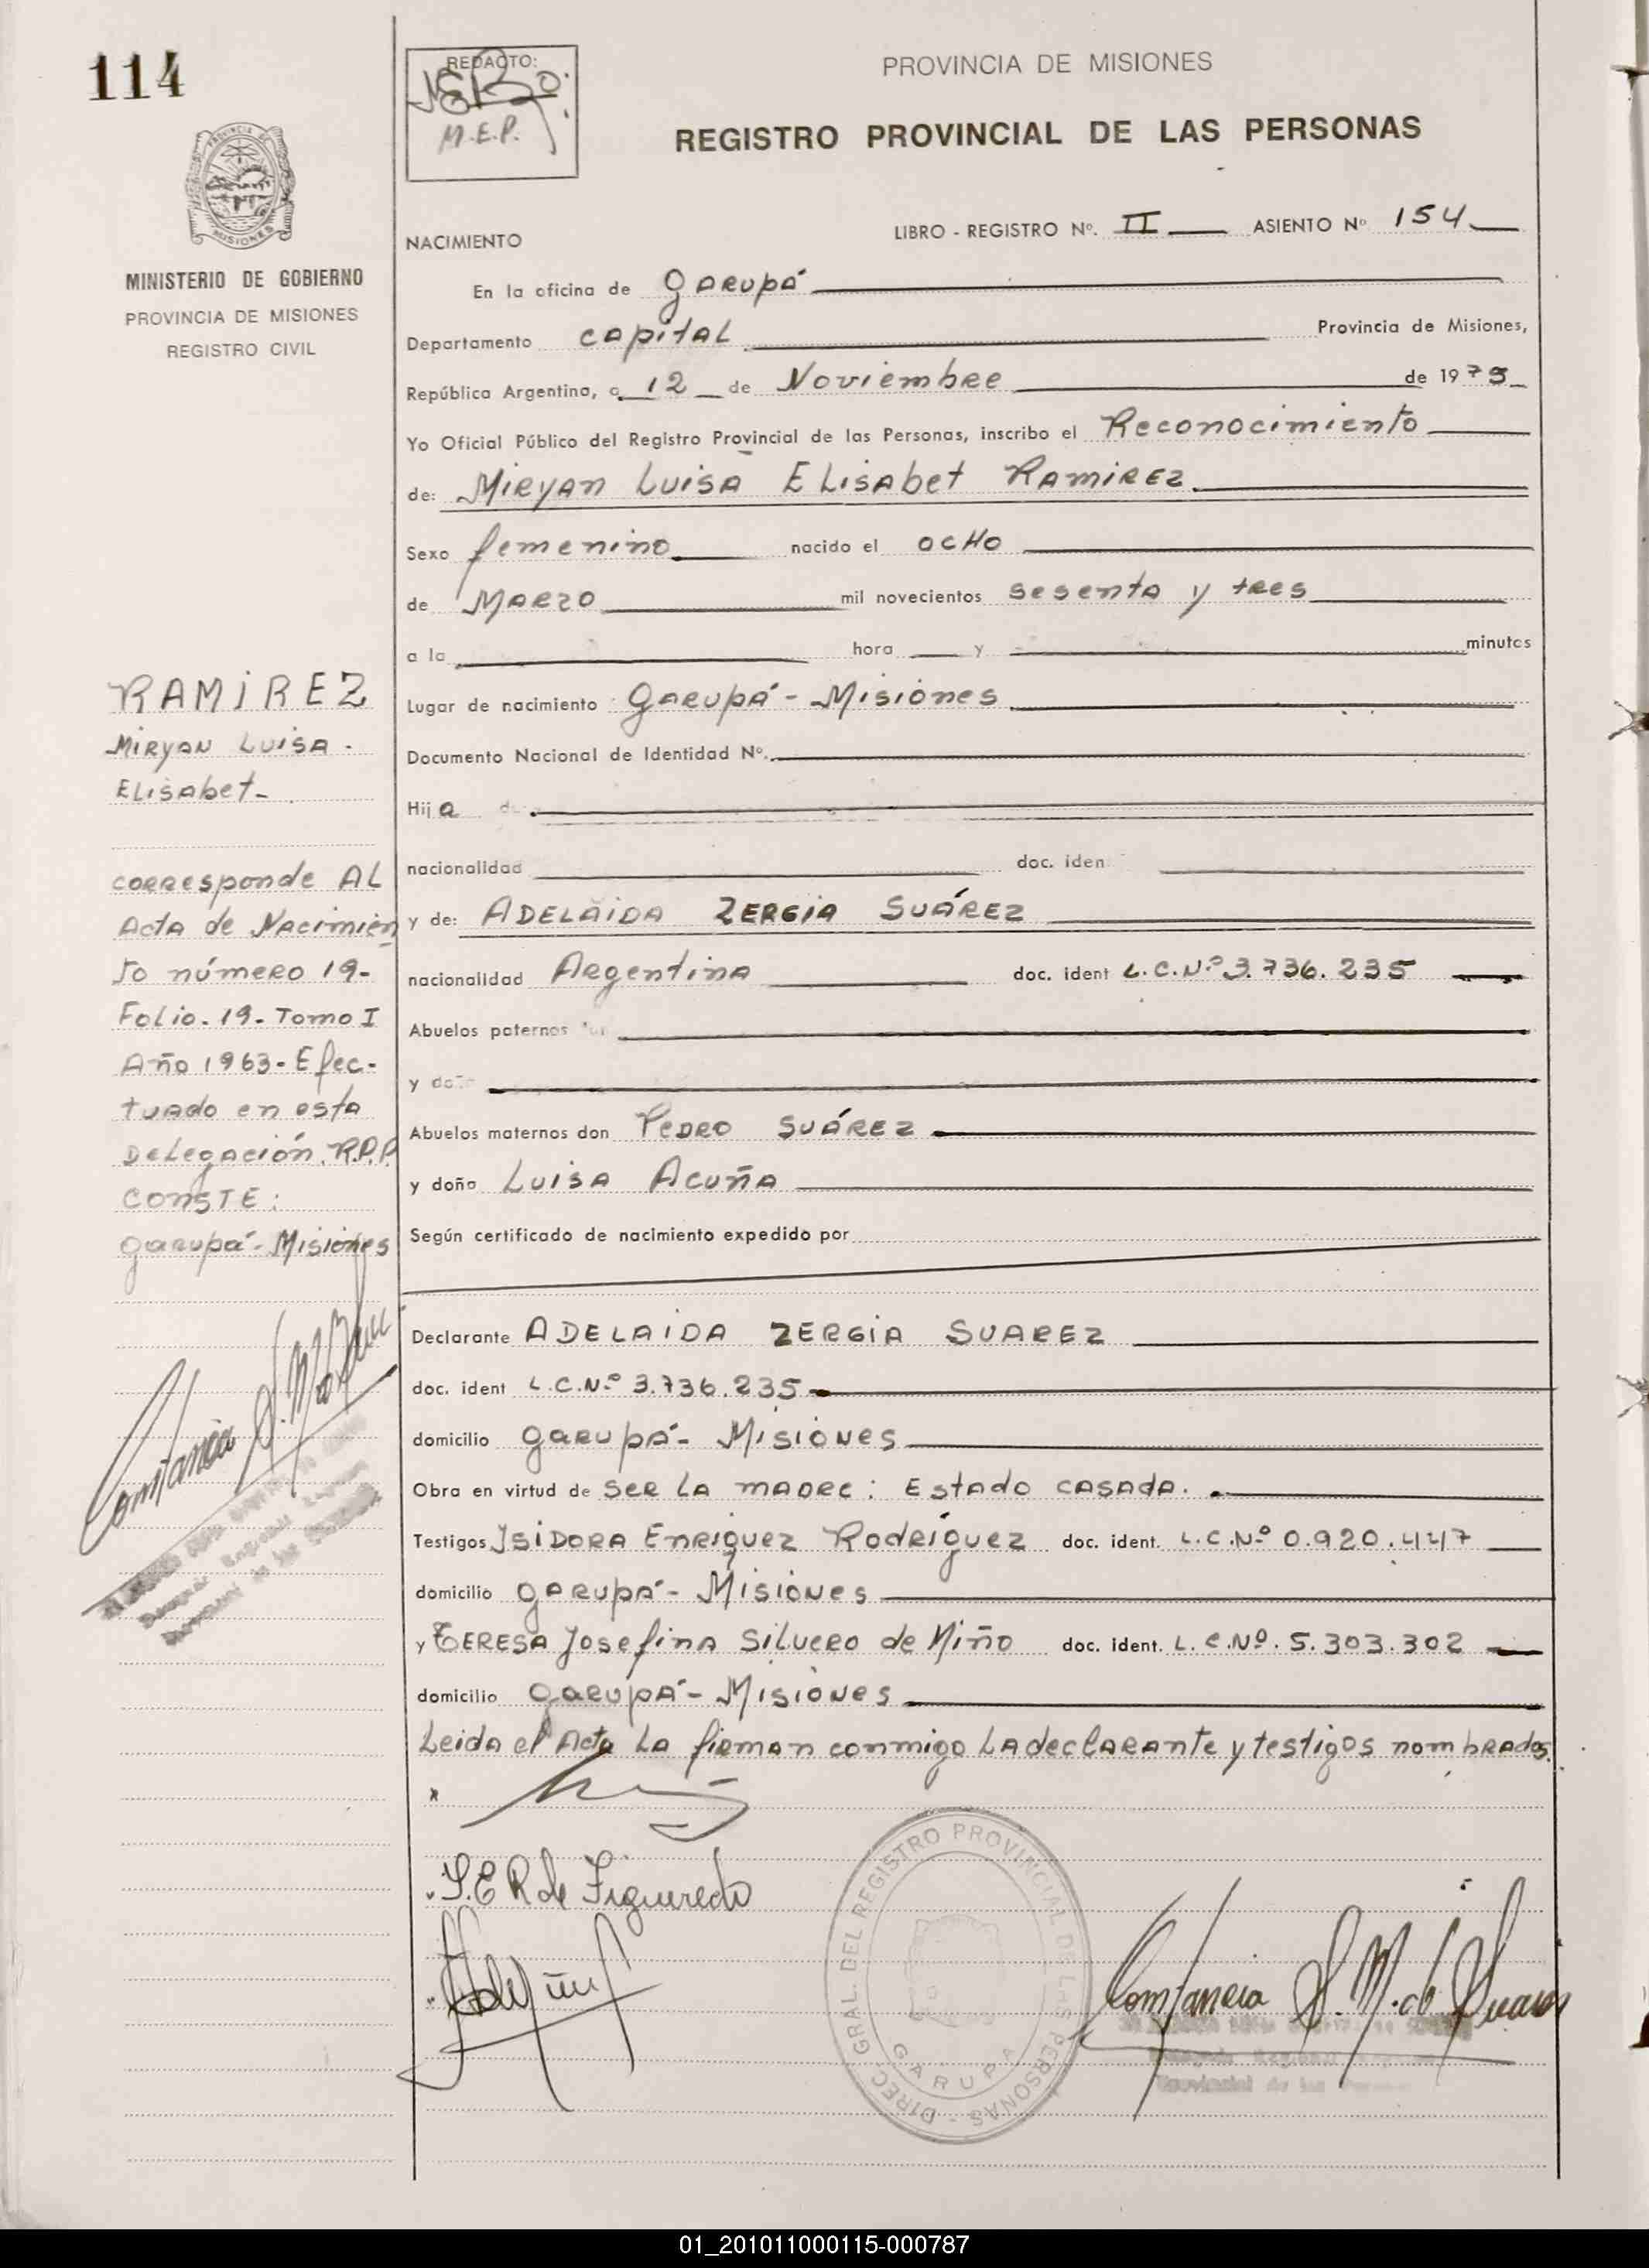 114
REDACTO:
M.E.P.
PROVINCIA DE MISIONES
REGISTRO PROVINCIAL DE LAS PERSONAS
PROVINCIA DE MISIONES
MINISTERIO DE GOBIERNO
PROVINCIA DE MISIONES
REGISTRO CIVIL
NACIMIENTO
LIBRO - REGISTRO Nº. II ASIENTO Nº 154
En la oficina de Garupá
Departamento Capital Provincia de Misiones,
República Argentina, a 12 de Noviembre de 1979
Yo Oficial Público del Registro Provincial de las Personas, inscribo el Reconocimiento
de: Miryan Luisa Elisabet Ramirez
Sexo femenino nacido el ocho
de Marzo mil novecientos sesenta y tres
a la hora y minutos
Lugar de nacimiento Garupá - Misiones
Documento Nacional de Identidad Nº.
Hija de
nacionalidad doc. iden
y de: ADELAIDA ZERGIA SUÁREZ
nacionalidad Argentina doc. ident L.C.Nº 3.736.235
Abuelos paternos
y do
Abuelos maternos don Pedro SUÁREZ
y doña Luisa Acuña
Según certificado de nacimiento expedido por
Declarante ADELAIDA ZERGIA SUAREZ
doc. ident L.C.Nº 3.736.235
domicilio Garupá - Misiones
Obra en virtud de ser la madre: Estado casada.
Testigos Isidora Enriquez Rodríguez doc. ident. L.C.Nº 0.920.447
domicilio Garupá - Misiones
y Teresa Josefina Silvero de Miño doc. ident. L.C.Nº. 5.303.302
domicilio Garupá - Misiones
Leida el Acta la firman conmigo la declarante y testigos nombrados.
I.E R de Figueredo
Constancia S. M. de Suarez
DIREC. GRAL. DEL REGISTRO PROVINCIAL DE LAS PERSONAS -
GARUPA
RAMIREZ
Miryan Luisa
Elisabet
corresponde AL
Acta de Nacimien
to número 19-
Folio. 19. Tomo I
Año 1963 - Efec-
tuado en esta
Delegación R.P.P.
CONSTE:
Garupá - Misiones
Constancia
01_201011000115-000787